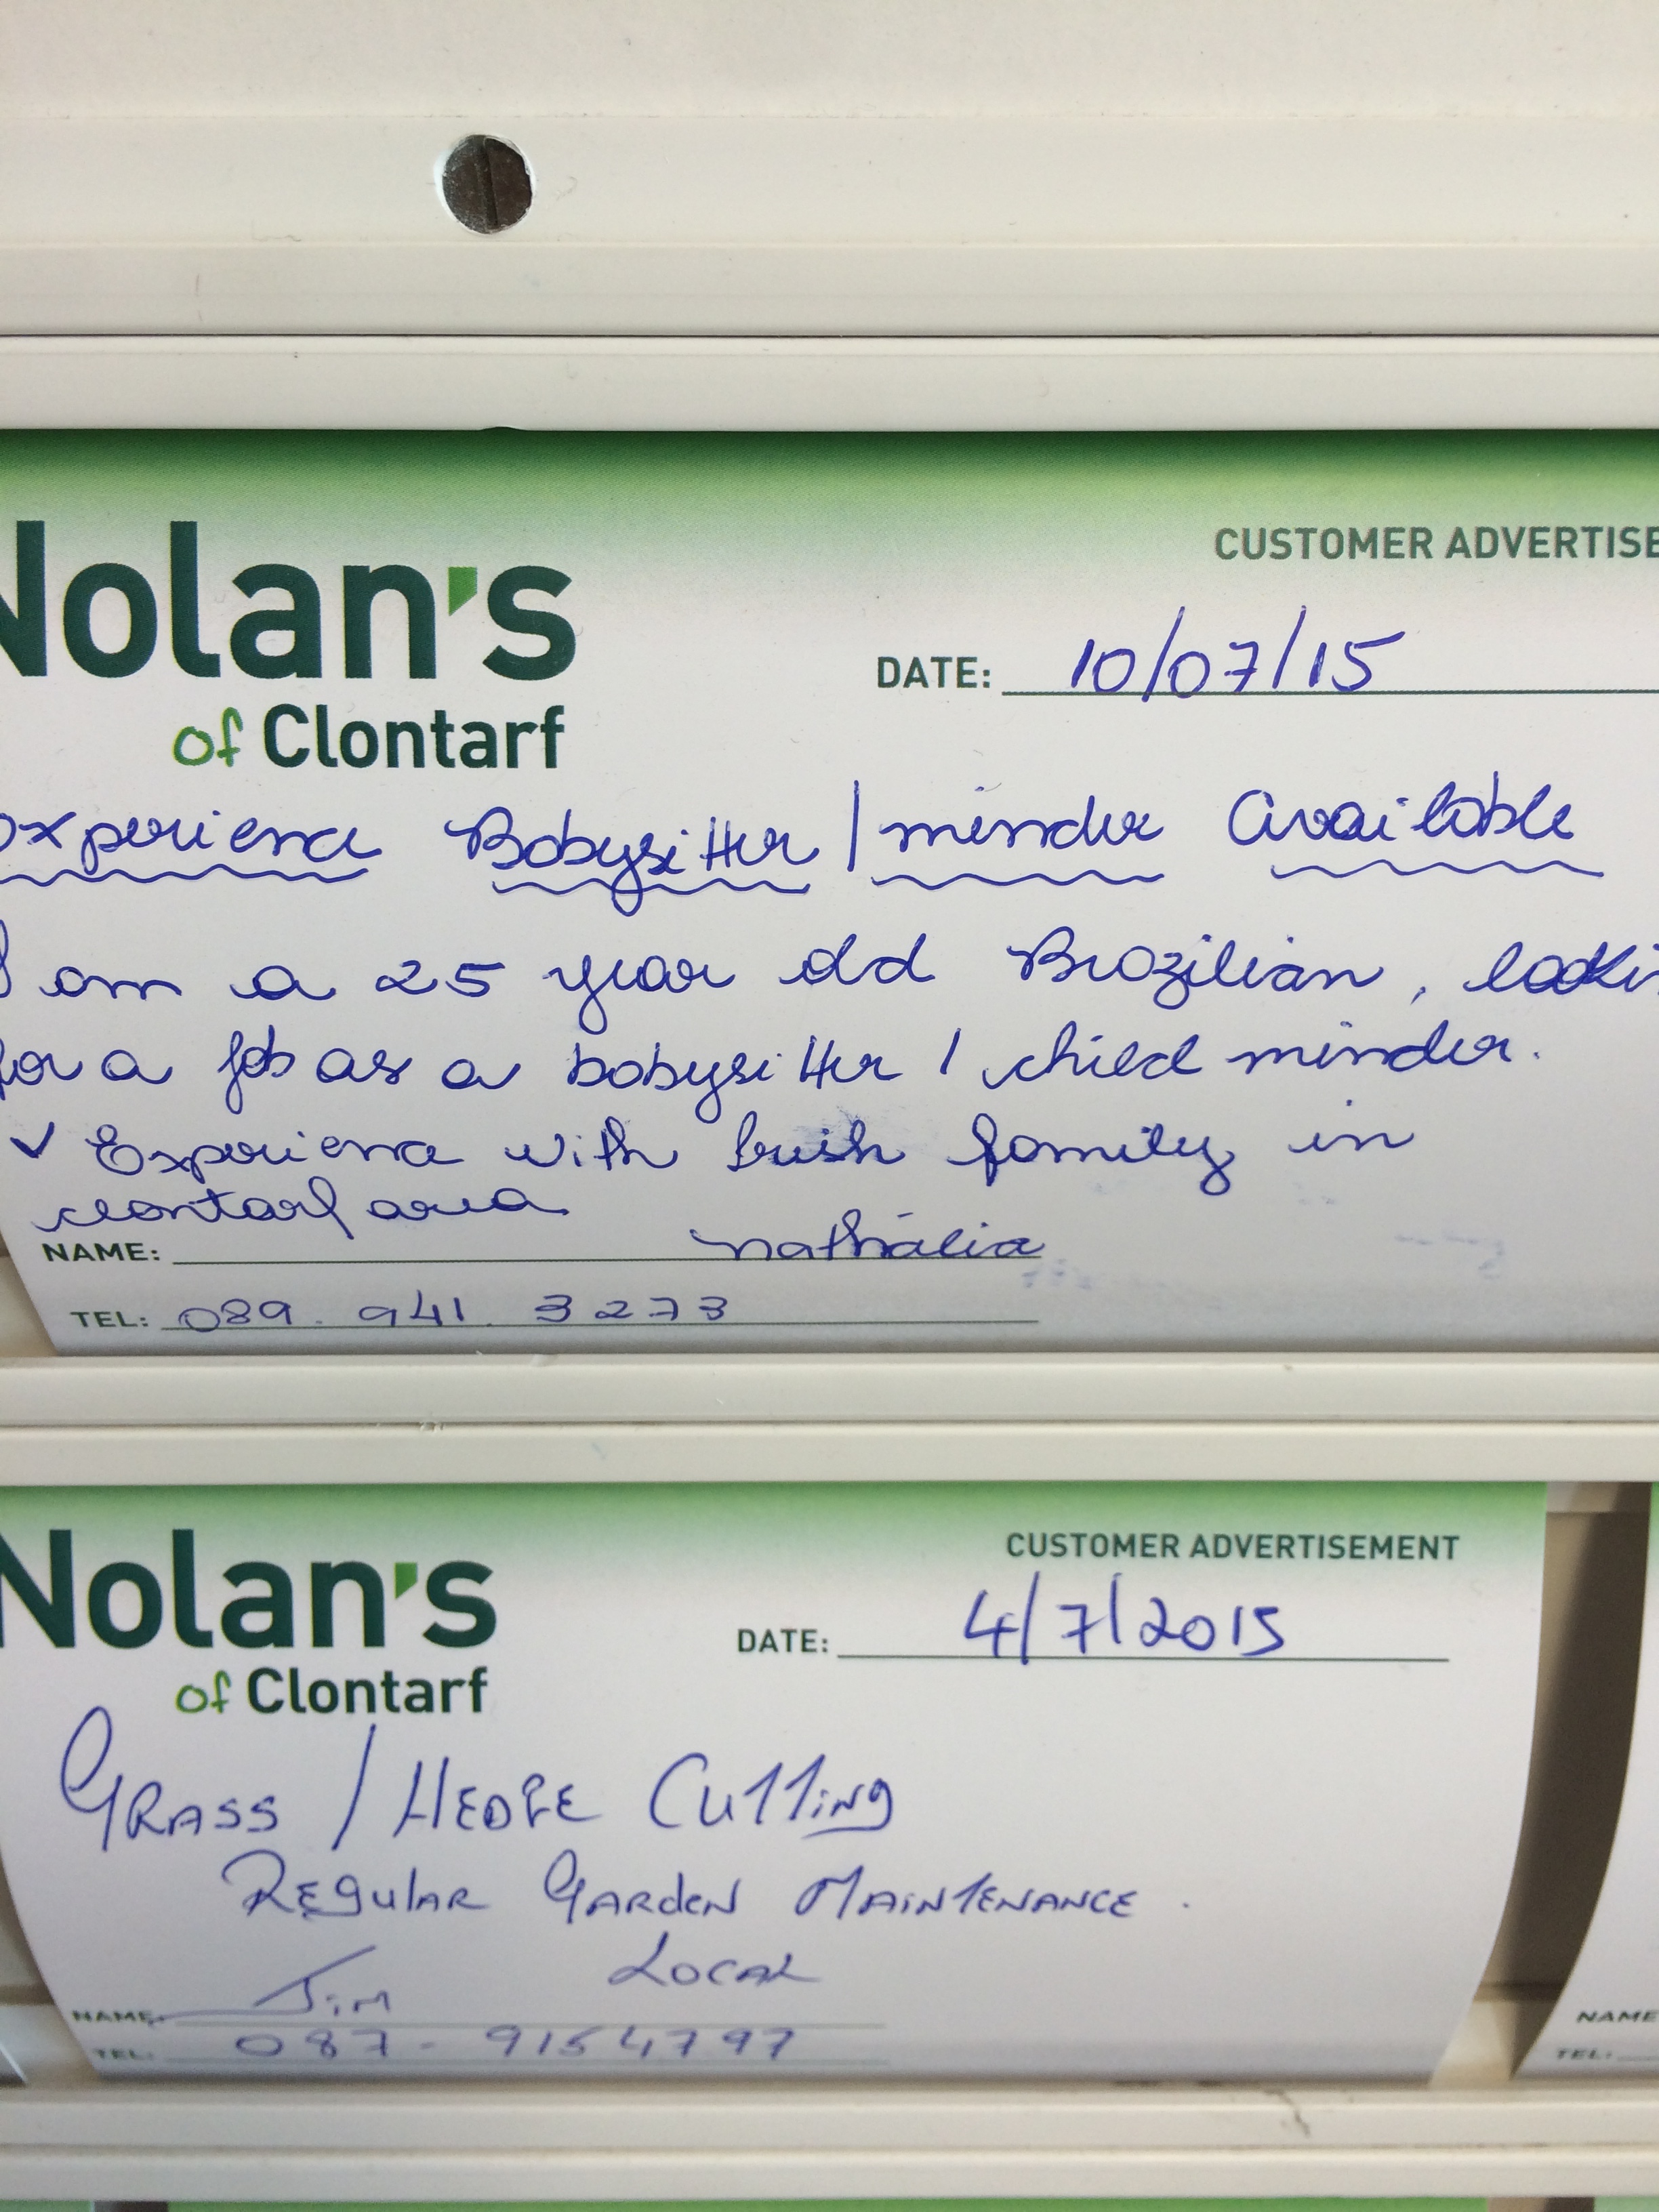 Nolan's
of Clontarf
CUSTOMER ADVERTISE
DATE: 10/07/15
Experience Babysitter / minder Available
I am a 25 year old Brazilian, looki
for a job as a babysitter / child minder.
✓ Experience with Irish family in
clontarf area
NAME: Nathália
TEL: 089. 941. 3273
Nolan's
of Clontarf
CUSTOMER ADVERTISEMENT
DATE: 4/7/2015
GRASS / HEDGE CUTTiNg
REgulAR GARdEN MAiNTENANCE.
LOCAL
NAME: Jim
TEL: 087 - 9154797
NAME
TEL: